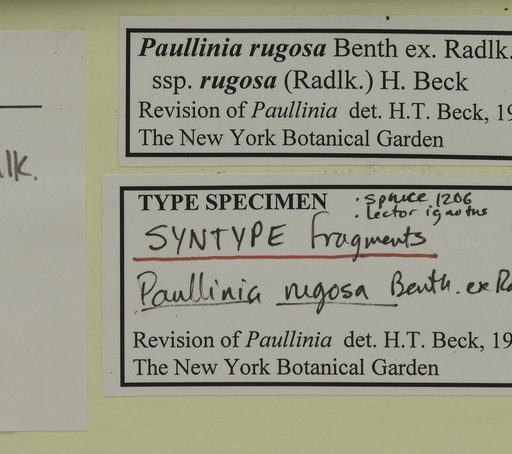 lk.
Paullinia rugosa Benth ex. Radlk.
ssp. rugosa (Radlk.) H. Beck
Revision of Paullinia det. H.T. Beck, 19
The New York Botanical Garden
TYPE SPECIMEN · Spruce 1206
· Lector ignotus
SYNTYPE fragments
Paullinia rugosa Benth. ex Ra
Revision of Paullinia det. H.T. Beck, 19
The New York Botanical Garden